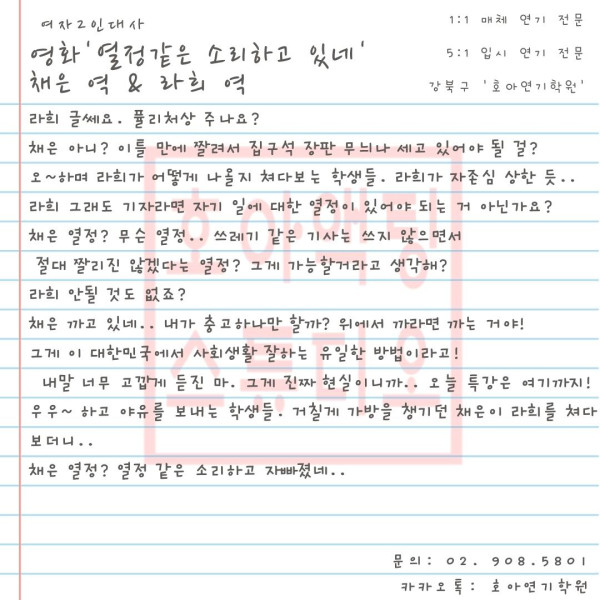 여자2인대사
1:1 매체 연기 전문
영화'열정같은 소리하고 있네'
5:1 입시 연기 전문
채은 역 & 라희 역
강북구 '호아연기학원'
라희 글쎄요. 퓰리처상 주나요?
채은 아니? 이틀 만에 짤려서 집구석 장판 무늬나 세고 있어야 될 걸?
오~하며 라희가 어떻게 나올지 쳐다보는 학생들. 라희가 자존심 상한 듯..
라희 그래도 기자라면 자기 일에 대한 열정이 있어야 되는 거 아닌가요?
채은 열정? 무슨 열정.. 쓰레기 같은 기사는 쓰지 않으면서
절대 짤리진 않겠다는 열정? 그게 가능할거라고 생각해?
라희 안될 것도 없죠?
채은 까고 있네.. 내가 충고하나만 할까? 위에서 까라면 까는 거야!
그게 이 대한민국에서 사회생활 잘하는 유일한 방법이라고!
내말 너무 고깝게 듣진 마. 그게 진짜 현실이니까.. 오늘 특강은 여기까지!
우우~ 하고 야유를 보내는 학생들. 거칠게 가방을 챙기던 채은이 라희를 쳐다
보더니..
채은 열정? 열정 같은 소리하고 자빠졌네..
호아액팅
스튜디오
문의: 02. 908.5801
카카오톡: 호아연기학원